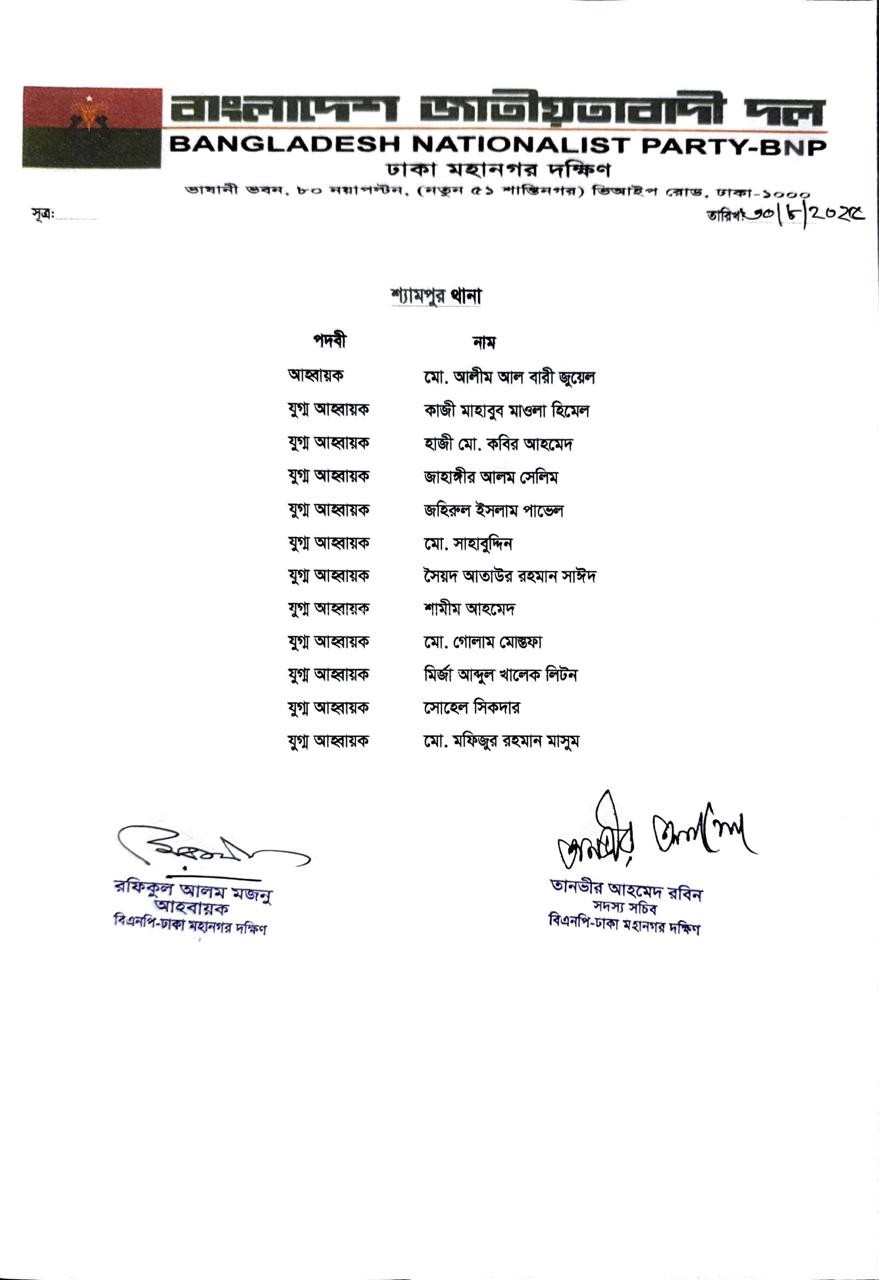 বাংলাদেশ জাতীয়তাবাদী দল
BANGLADESH NATIONALIST PARTY-BNP
ঢাকা মহানগর দক্ষিণ
ভাষানী ভবন, ৮০ নয়াপল্টন, (নতুন ৫১ শান্তিনগর) ভিআইপি রোড, ঢাকা-১০০০
সূত্র:.......... তারিখ: ৩০/৮/২০২৫
শ্যামপুর থানা
পদবী নাম
আহ্বায়ক মো. আলীম আল বারী জুয়েল
যুগ্ম আহ্বায়ক কাজী মাহাবুব মাওলা হিমেল
যুগ্ম আহ্বায়ক হাজী মো. কবির আহমেদ
যুগ্ম আহ্বায়ক জাহাঙ্গীর আলম সেলিম
যুগ্ম আহ্বায়ক জহিরুল ইসলাম পাভেল
যুগ্ম আহ্বায়ক মো. সাহাবুদ্দিন
যুগ্ম আহ্বায়ক সৈয়দ আতাউর রহমান সাঈদ
যুগ্ম আহ্বায়ক শামীম আহমেদ
যুগ্ম আহ্বায়ক মো. গোলাম মোস্তফা
যুগ্ম আহ্বায়ক মির্জা আব্দুল খালেক লিটন
যুগ্ম আহ্বায়ক সোহেল সিকদার
যুগ্ম আহ্বায়ক মো. মফিজুর রহমান মাসুম
রফিকুল আলম মজনু
আহবায়ক
বিএনপি-ঢাকা মহানগর দক্ষিণ
তানভীর আহমেদ রবিন
সদস্য সচিব
বিএনপি-ঢাকা মহানগর দক্ষিণ